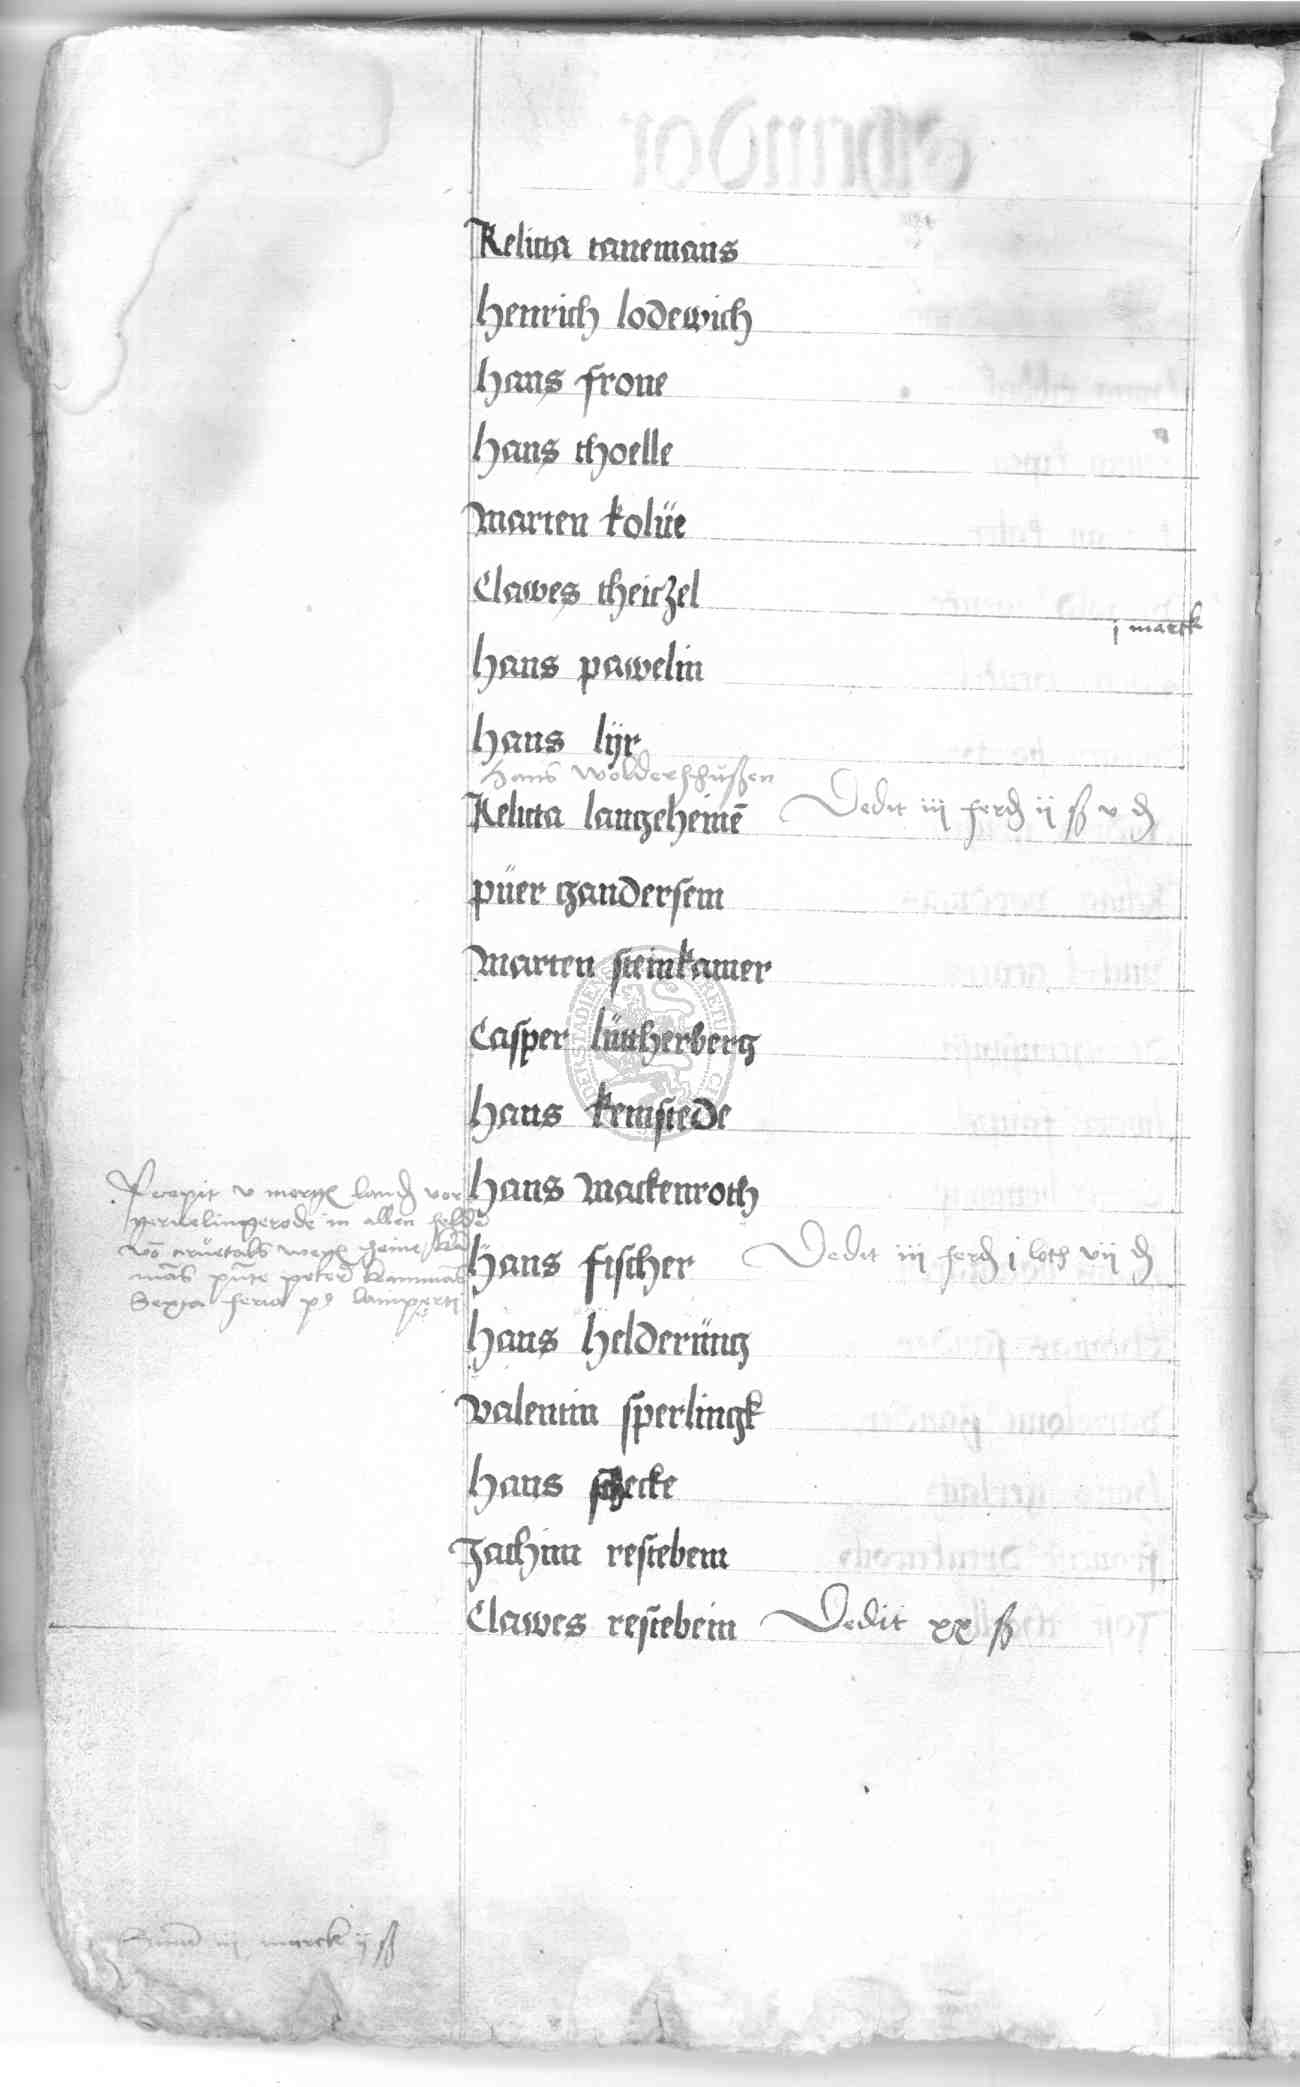 Relicta tanemans
Henrich lodewich
Hans frone
Hans thoelle
Marten kolüe
Clawes theiczel
j marck
Hans pawelin
Hans lÿr
Hans wolderßhußen
Relicta langeheinē Dedit iij ferd ij ß v d
püer gandersem
Marten steinkamer
Casper lüttherberg
Hans kemstede
Recepit v morg land vor
Hans Mackenroth
wernelingerode in allen felde
Hans fischer Dedit iij ferd j loth vij d
Sexta feria p lamperti
Hans helderüng
Valentin sperlingk
Hans schecke
Jachim restebem
Clawes restebein Dedit xx ß
Sum iij marck ij ß